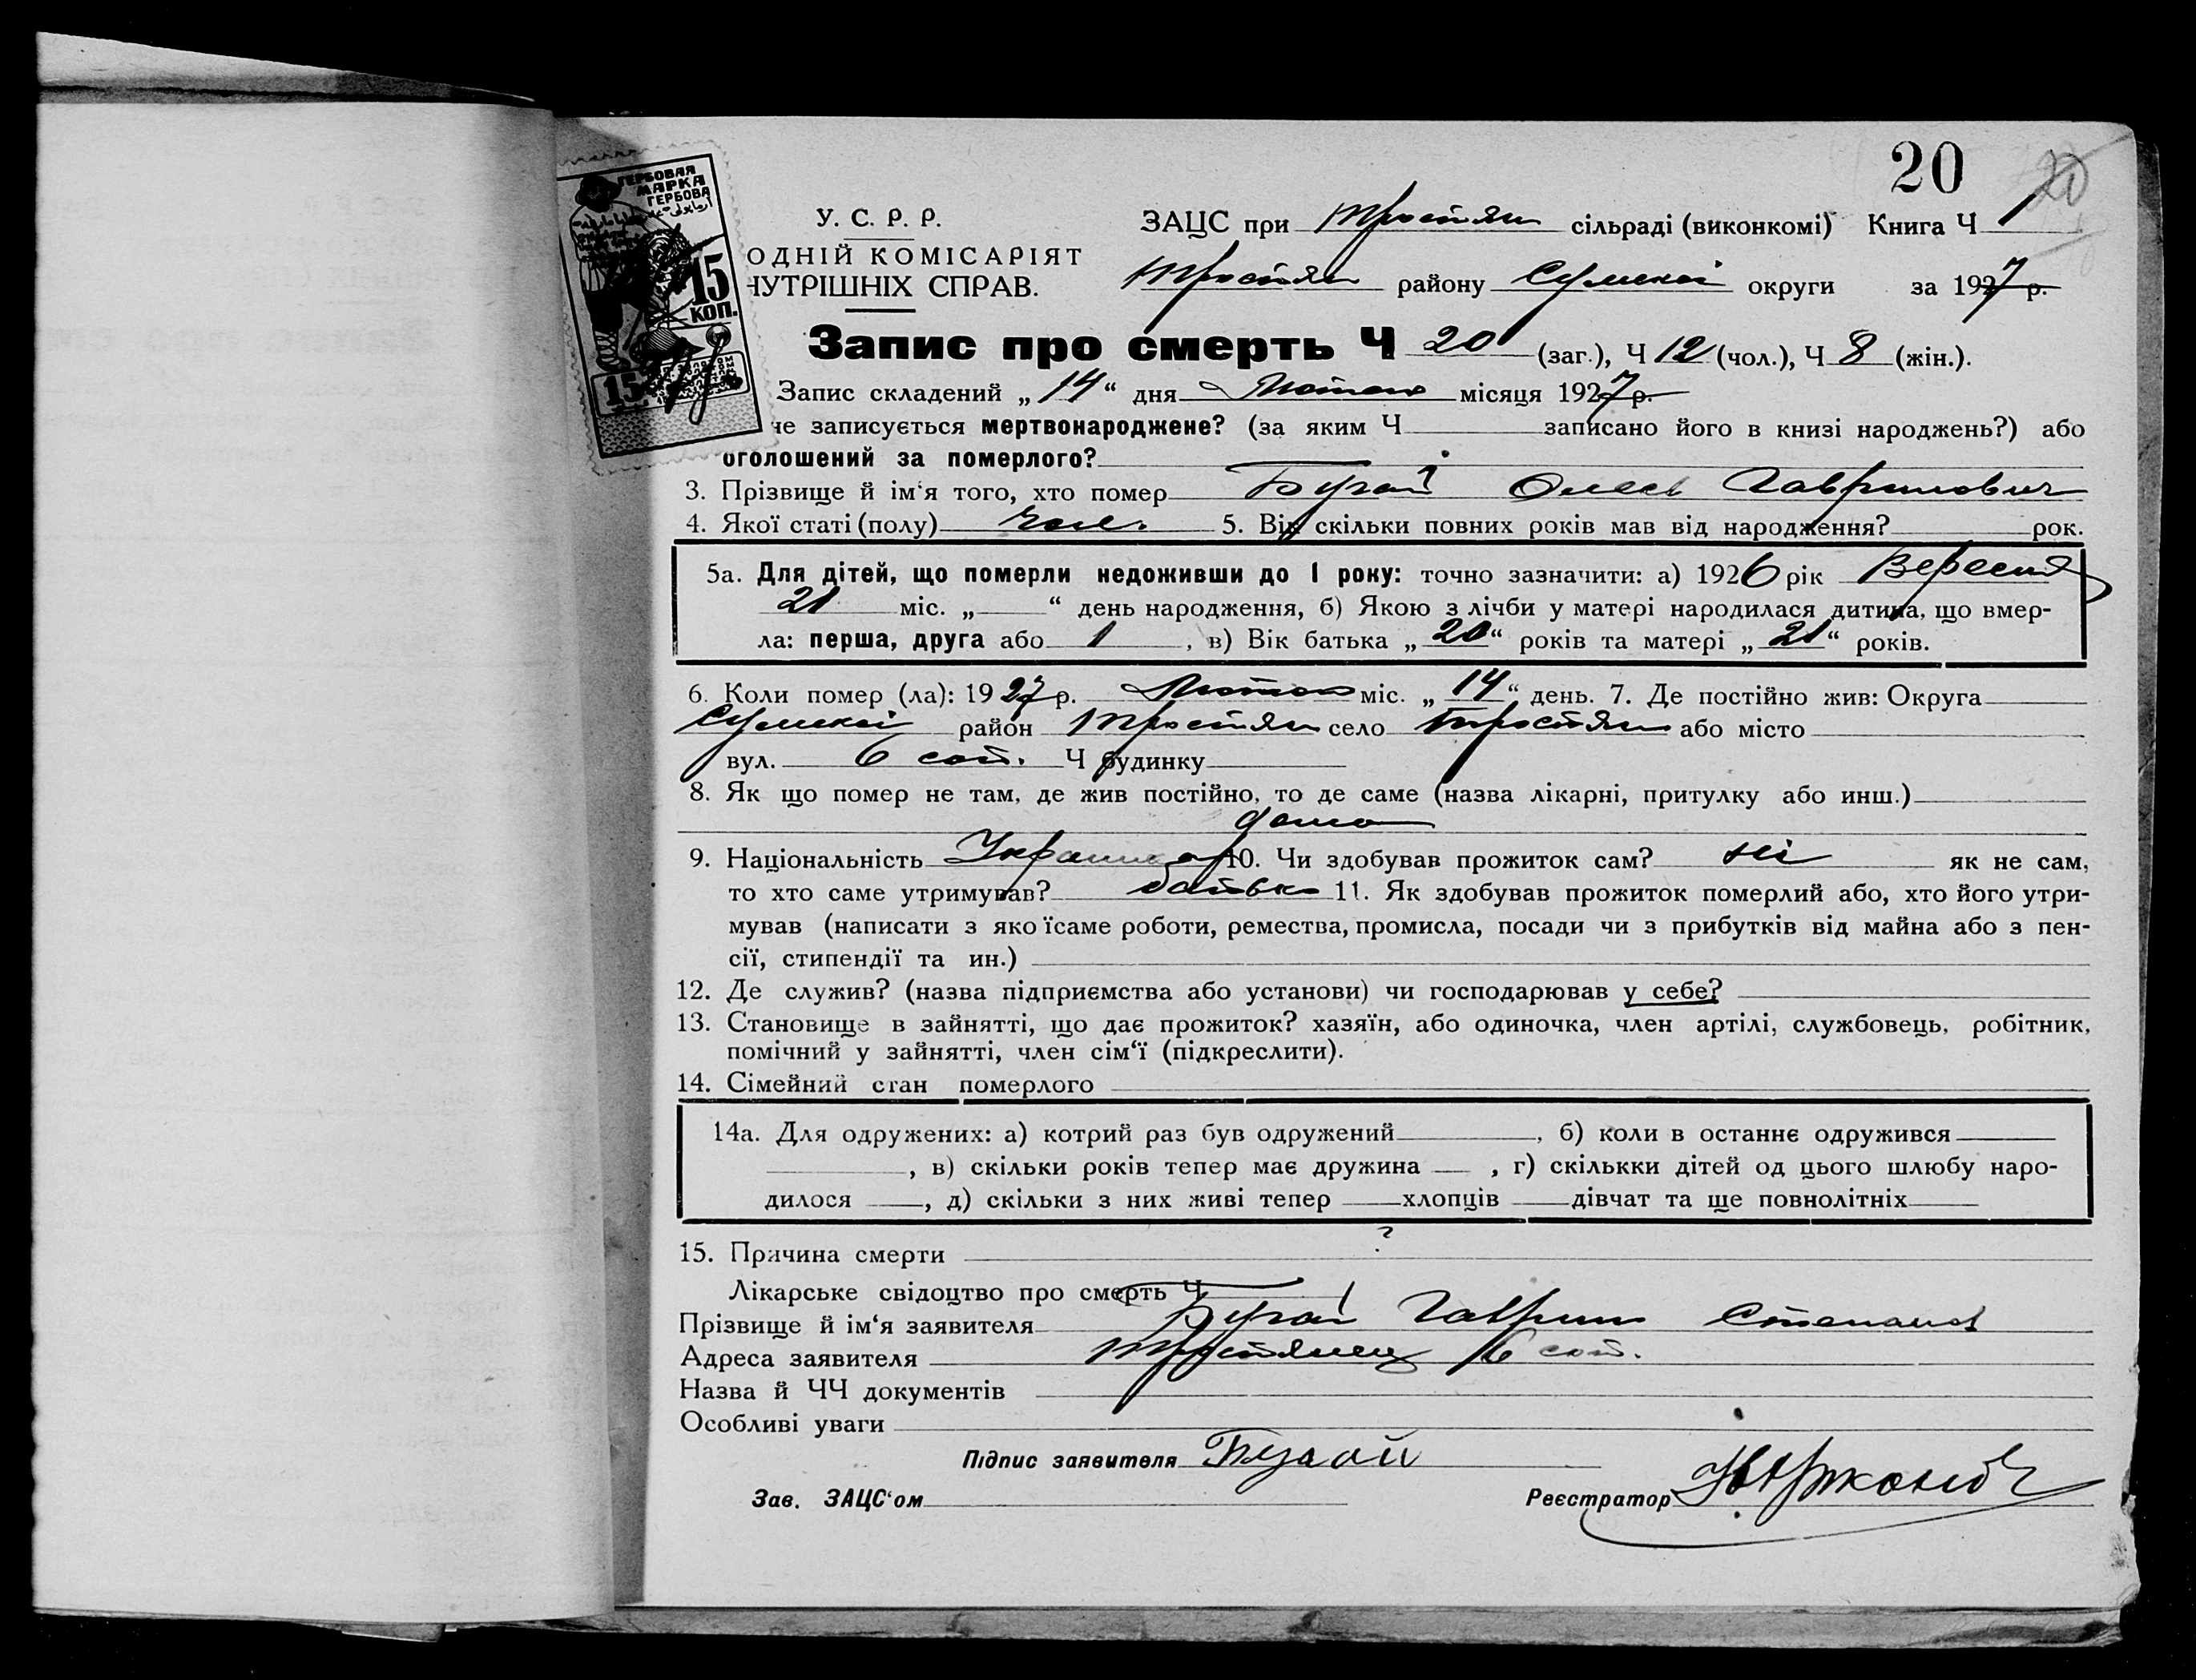 20 20
ГЕРБОВАЯ
МАРКА
ГЕРБОВА
15
КОП.
15
У. С. Р. Р.
ОДНІЙ КОМІСАРІЯТ
НУТРІШНІХ СПРАВ.
ЗАЦС при Тростян сільраді (виконкомі) Книга Ч 1
Тростян району Сумської округи за 1927 р.
Запис про смерть Ч 20 (заг.), Ч 12 (чол.), Ч 8 (жін.).
Запис складений „14“ дня Лютого місяця 1927 р.
че записується мертвонароджене? (за яким Ч записано його в книзі народжень?) або
оголошений за померлого?
3. Прізвище й ім‘я того, хто помер Бугай Олесь Гаврилович
4. Якої статі (полу) чол. 5. Вік скільки повних років мав від народження? рок.
5а. Для дітей, що померли недоживши до 1 року: точно зазначити: а) 1926 рік Вересня
21 міс. „ “ день народження, б) Якою з лічби у матері народилася дитина, що вмер-
ла: перша, друга або 1 , в) Вік батька „20“ років та матері „21“ років.
6. Коли помер (ла): 1927 р. Лютого міс. „14“ день. 7. Де постійно жив: Округа
Сумської район Тростян село Тростян або місто
вул. 6 сот. Ч будинку
8. Як що помер не там, де жив постійно, то де саме (назва лікарні, притулку або инш.)
дома
9. Національність 10. Чи здобував прожиток сам? ні як не сам,
то хто саме утримував? батько 11. Як здобував прожиток померлий або, хто його утри-
мував (написати з яко їсаме роботи, ремества, промисла, посади чи з прибутків від майна або з пен-
сії, стипендії та ин.)
12. Де служив? (назва підприємства або установи) чи господарював у себе?
13. Становище в зайнятті, що дає прожиток? хазяїн, або одиночка, член артілі, службовець, робітник,
помічний у зайнятті, член сім‘ї (підкреслити).
14. Сімейний стан померлого
14а. Для одружених: а) котрий раз був одружений , б) коли в останнє одружився
, в) скільки років тепер має дружина , г) скількки дітей од цього шлюбу наро-
дилося , д) скільки з них живі тепер хлопців дівчат та ще повнолітніх
15. Причина смерти ?
Лікарське свідоцтво про смерть Ч
Прізвище й ім‘я заявителя Бугай Гаврил Степанов
Адреса заявителя Тростянец 6 сот.
Назва й ЧЧ документів
Особливі уваги
Підпис заявителя Бугай
Зав. ЗАЦС‘ом Реєстратор